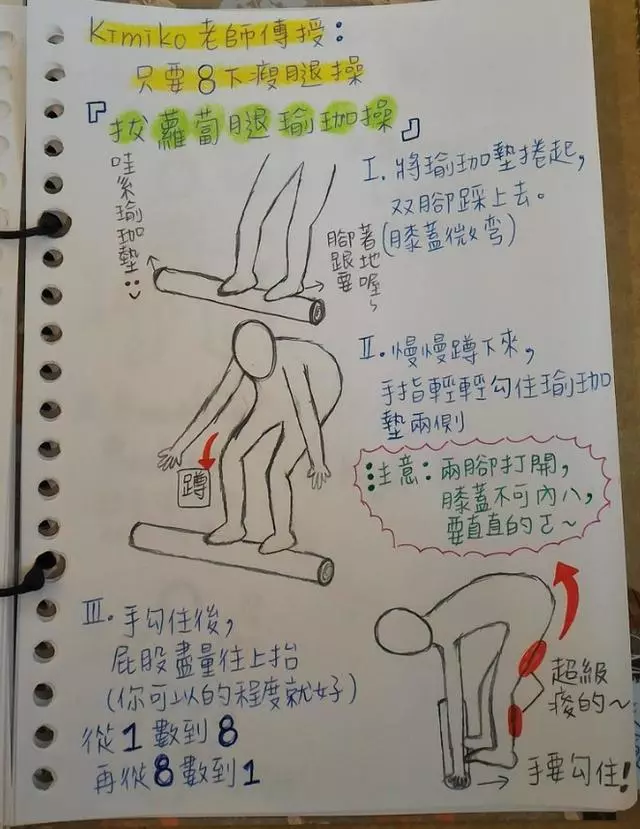 Kimiko 老師傳授：
只要 8 下瘦腿操
『拔蘿蔔腿瑜珈操』
哇系瑜珈墊
I. 將瑜珈墊捲起，
双腳踩上去。
(膝蓋微弯)
腳跟要
著地喔~
II. 慢慢蹲下來，
手指輕輕勾住瑜珈
墊兩側
蹲
注意：兩腳打開，
膝蓋不可內八，
要直直的ㄛ~
III. 手勾住後，
屁股盡量往上抬
(你可以的程度就好)
從 1 數到 8
再從 8 數到 1
超級
痠的~
手要勾住!